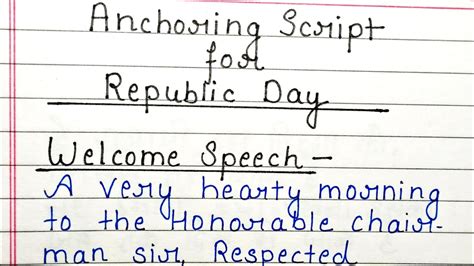 Anchoring Script
for
Republic Day
Welcome Speech -
A very hearty morning
to the Honorable chair-
man sir, Respected